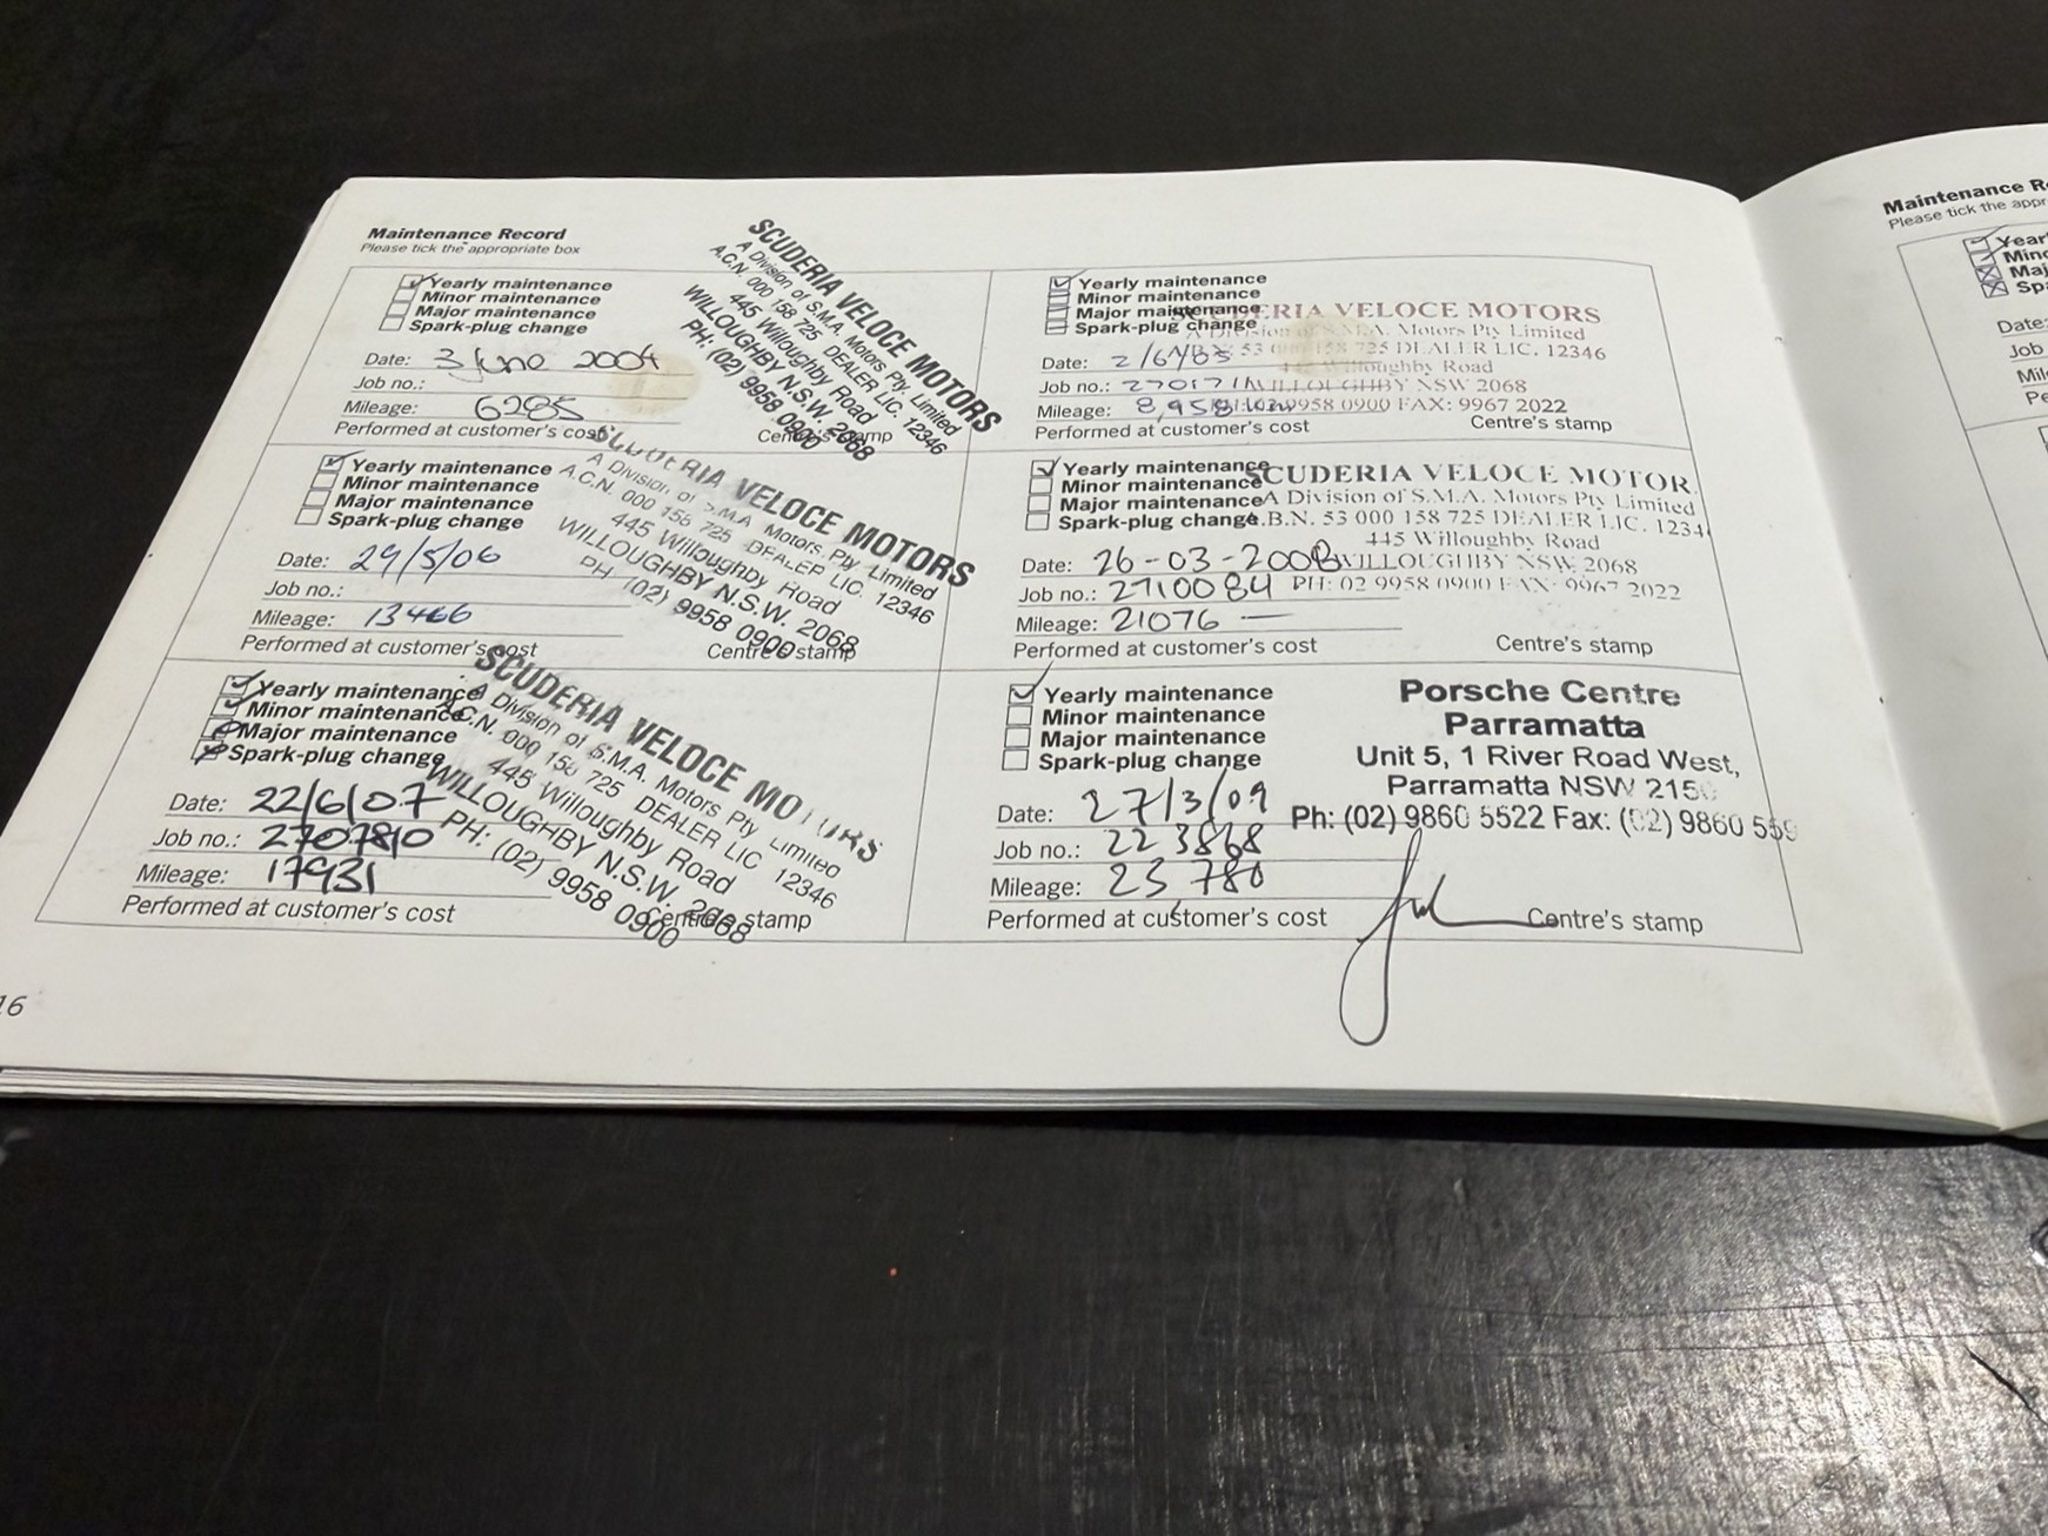 Maintenance Record
Please tick the appropriate box
Yearly maintenance
Minor maintenance
Major maintenance
Spark-plug change
Date: 3 June 2004
Job no.:
Mileage: 6285
Performed at customer's cost
Centre's stamp
SCUDERIA VELOCE MOTORS
A Division of S.M.A. Motors Pty. Limited
A.C.N. 000 158 725 DEALER LIC. 12346
445 Willoughby Road
WILLOUGHBY N.S.W. 2068
PH: (02) 9958 0900
Yearly maintenance
Minor maintenance
Major maintenance
Spark-plug change
Date: 2/6/05
Job no.:
Mileage: 8,958 km
Performed at customer's cost
Centre's stamp
SCUDERIA VELOCE MOTORS
A Division of S.M.A. Motors Pty Limited
53 000 158 725 DEALER LIC. 12346
Willoughby Road
WILLOUGHBY NSW 2068
9958 0900 FAX: 9967 2022
Yearly maintenance
Minor maintenance
Major maintenance
Spark-plug change
Date: 29/5/06
Job no.:
Mileage: 13466
Performed at customer's cost
Centre's stamp
SCUDERIA VELOCE MOTORS
A Division of S.M.A. Motors Pty. Limited
A.C.N. 000 158 725 DEALER LIC. 12346
445 Willoughby Road
WILLOUGHBY N.S.W. 2068
PH (02) 9958 0900
Yearly maintenance
Minor maintenance
Major maintenance
Spark-plug change
Date: 26-03-2008
Job no.: 2710084
Mileage: 21076 —
Performed at customer's cost
Centre's stamp
SCUDERIA VELOCE MOTOR
A Division of S.M.A. Motors Pty Limited
.B.N. 53 000 158 725 DEALER LIC. 1234
445 Willoughby Road
WILLOUGHBY NSW 2068
PH: 02 9958 0900 FAX: 9967 2022
Yearly maintenance
Minor maintenance
Major maintenance
Spark-plug change
Date: 22/6/07
Job no.: 2707810
Mileage: 17931
Performed at customer's cost
Centre's stamp
SCUDERIA VELOCE MOTORS
A Division of S.M.A. Motors Pty Limited
A.C.N. 000 158 725 DEALER LIC 12346
445 Willoughby Road
WILLOUGHBY N.S.W. 2068
PH: (02) 9958 0900
Yearly maintenance
Minor maintenance
Major maintenance
Spark-plug change
Date: 27/3/09
Job no.: 223868
Mileage: 23780
Performed at customer's cost
Centre's stamp
Porsche Centre
Parramatta
Unit 5, 1 River Road West,
Parramatta NSW 2150
Ph: (02) 9860 5522 Fax: (02) 9860 559
16
Maintenance R
Please tick the appr
Year
Mino
Maj
Spa
Date:
Job
Mil
Pe